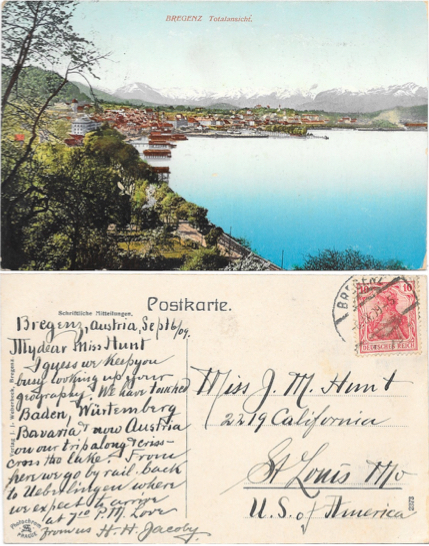 BREGENZ Totalansicht.
Schriftliche Mitteilungen.
Postkarte.
Bregenz, Austria, Sept 6/09.
My dear Miss Hunt
I guess we keep you
busy looking up your
geography. We have touched
Baden, Würtemberg
Bavaria & now Austria
on our trip along & criss-
cross the lake. From
here we go by rail back
to Ueberlingen where
we expect to arrive
at 7 P.M. Love
from us H. H. Jacoby
Miss J. M. Hunt
2219 California
St Louis Mo
U.S. of America
BREGENZ
10
DEUTSCHES REICH
Photochrom
PRAGUE